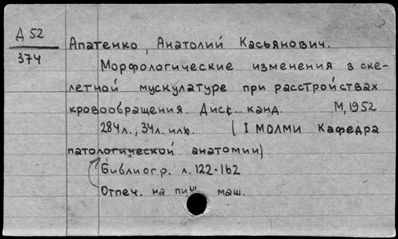 Д 52
374
Апатенко, Анатолий Касьянович.
Морфологические изменения в ске-
летной мускулатуре при расстройствах
кровообращения. Дисс... канд. М, 1952
284л., 34л. илю. (I МОЛМИ Кафедра
патологической анатомии)
Библиогр. л. 122-162
Отпеч. на пиш. маш.